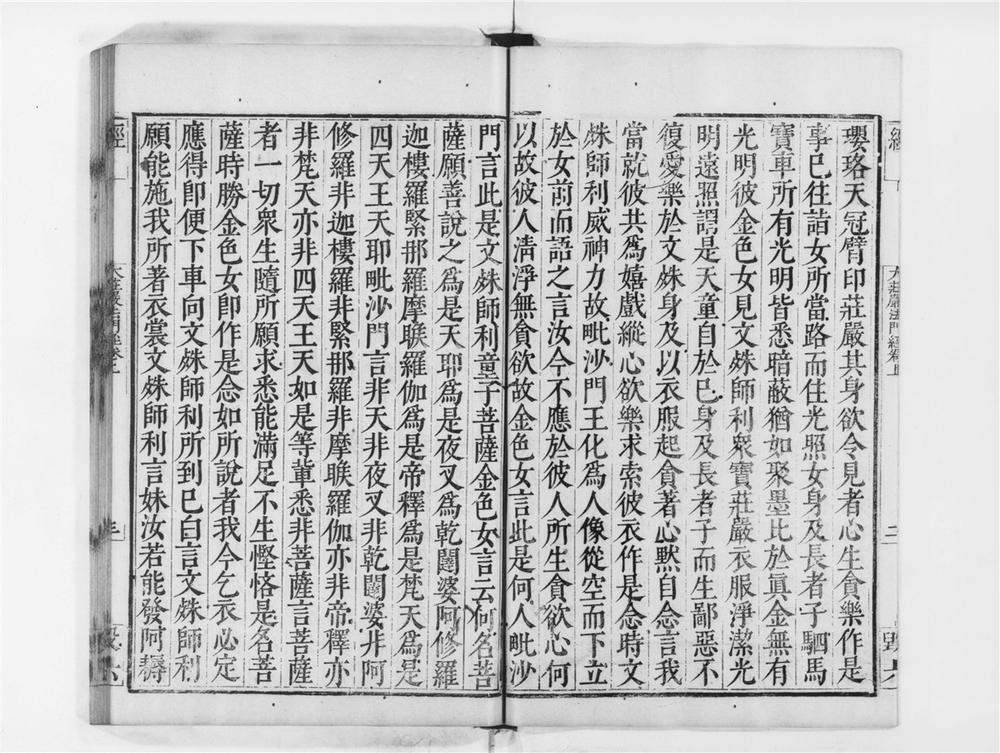 經
大莊嚴法門經卷上
三
毀六
瓔珞天冠臂印莊嚴其身欲令見者心生貪樂作是
事已往詣女所當路而住光照女身及長者子駟馬
寶車所有光明皆悉暗蔽猶如聚墨比於眞金無有
光明彼金色女見文殊師利衆寶莊嚴衣服淨潔光
明遠照謂是天童自於已身及長者子而生鄙惡不
復愛樂於文殊身及以衣服起貪著心默自念言我
當就彼共爲嬉戲縱心欲樂求索彼衣作是念時文
殊師利威神力故毗沙門王化爲人像從空而下立
於女前而語之言汝今不應於彼人所生貪欲心何
以故彼人清淨無貪欲故金色女言此是何人毗沙
門言此是文殊師利童子菩薩金色女言云何名菩
薩願善說之爲是天耶爲是夜叉爲乾闥婆阿修羅
迦樓羅緊那羅摩睺羅伽爲是帝釋爲是梵天爲是
四天王天耶毗沙門言非天非夜叉非乾闥婆非阿
修羅非迦樓羅非緊那羅非摩睺羅伽亦非帝釋亦
非梵天亦非四天王天如是等輩悉非菩薩言菩薩
者一切衆生隨所願求悉能滿足不生慳悋是名菩
薩時勝金色女卽作是念如所說者我今乞衣必定
應得卽便下車向文殊師利所到已白言文殊師利
願能施我所著衣裳文殊師利言妹汝若能發阿耨
經
三